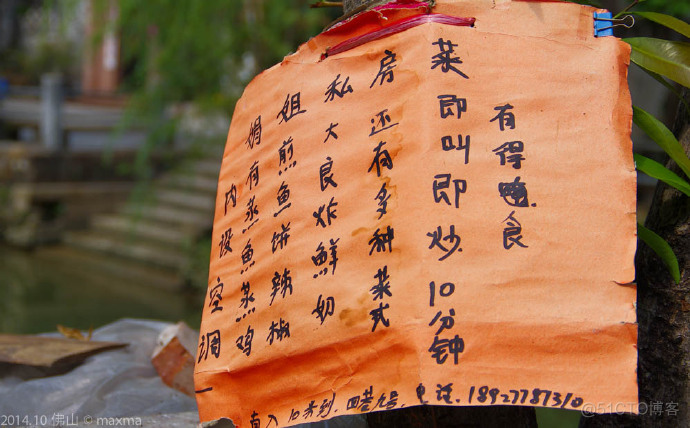 娟姐私房菜
内设空调
有蒸鱼蒸鸡
煎鱼饼辣椒
大良炸鲜奶
还有多种菜式
即叫即炒10分钟
有得食
一直入10步到,四巷九号,电话.18927787310
2014.10 佛山 © maxma
@51CTO博客